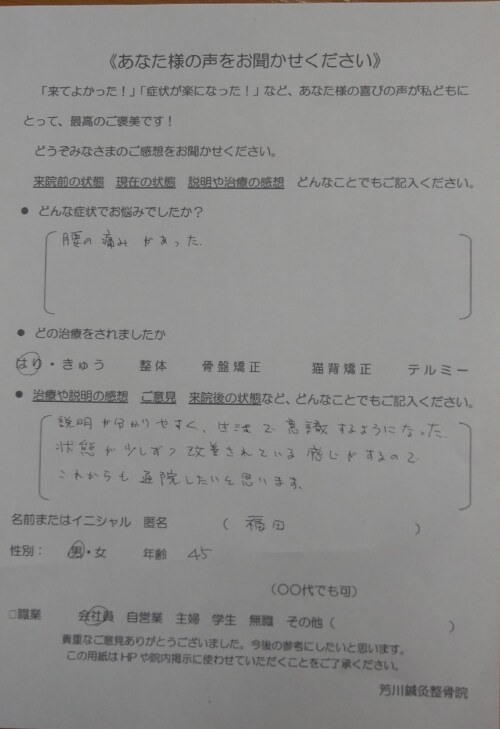 《あなた様の声をお聞かせください》
「来てよかった！」「症状が楽になった！」など、あなた様の喜びの声が私どもに
とって、最高のご褒美です！
どうぞみなさまのご感想をお聞かせください。
来院前の状態　現在の状態　説明や治療の感想　どんなことでもご記入ください。
● どんな症状でお悩みでしたか？
腰の痛みがあった.
● どの治療をされましたか
はり・きゅう　整体　骨盤矯正　猫背矯正　テルミー
● 治療や説明の感想　ご意見　来院後の状態など、どんなことでもご記入ください。
説明が分かりやすく、で意識するようになった
状態が少しずつ改善されている感じがするので
これからも通院したいと思います。
名前またはイニシャル　匿名　（　福田　）
性別：　男・女　年齢　45
（〇〇代でも可）
□職業　会社員　自営業　主婦　学生　無職　その他（　）
貴重なご意見ありがとうございました。今後の参考にしたいと思います。
この用紙はHPや院内掲示に使わせていただくことをご了承ください。
芳川鍼灸整骨院